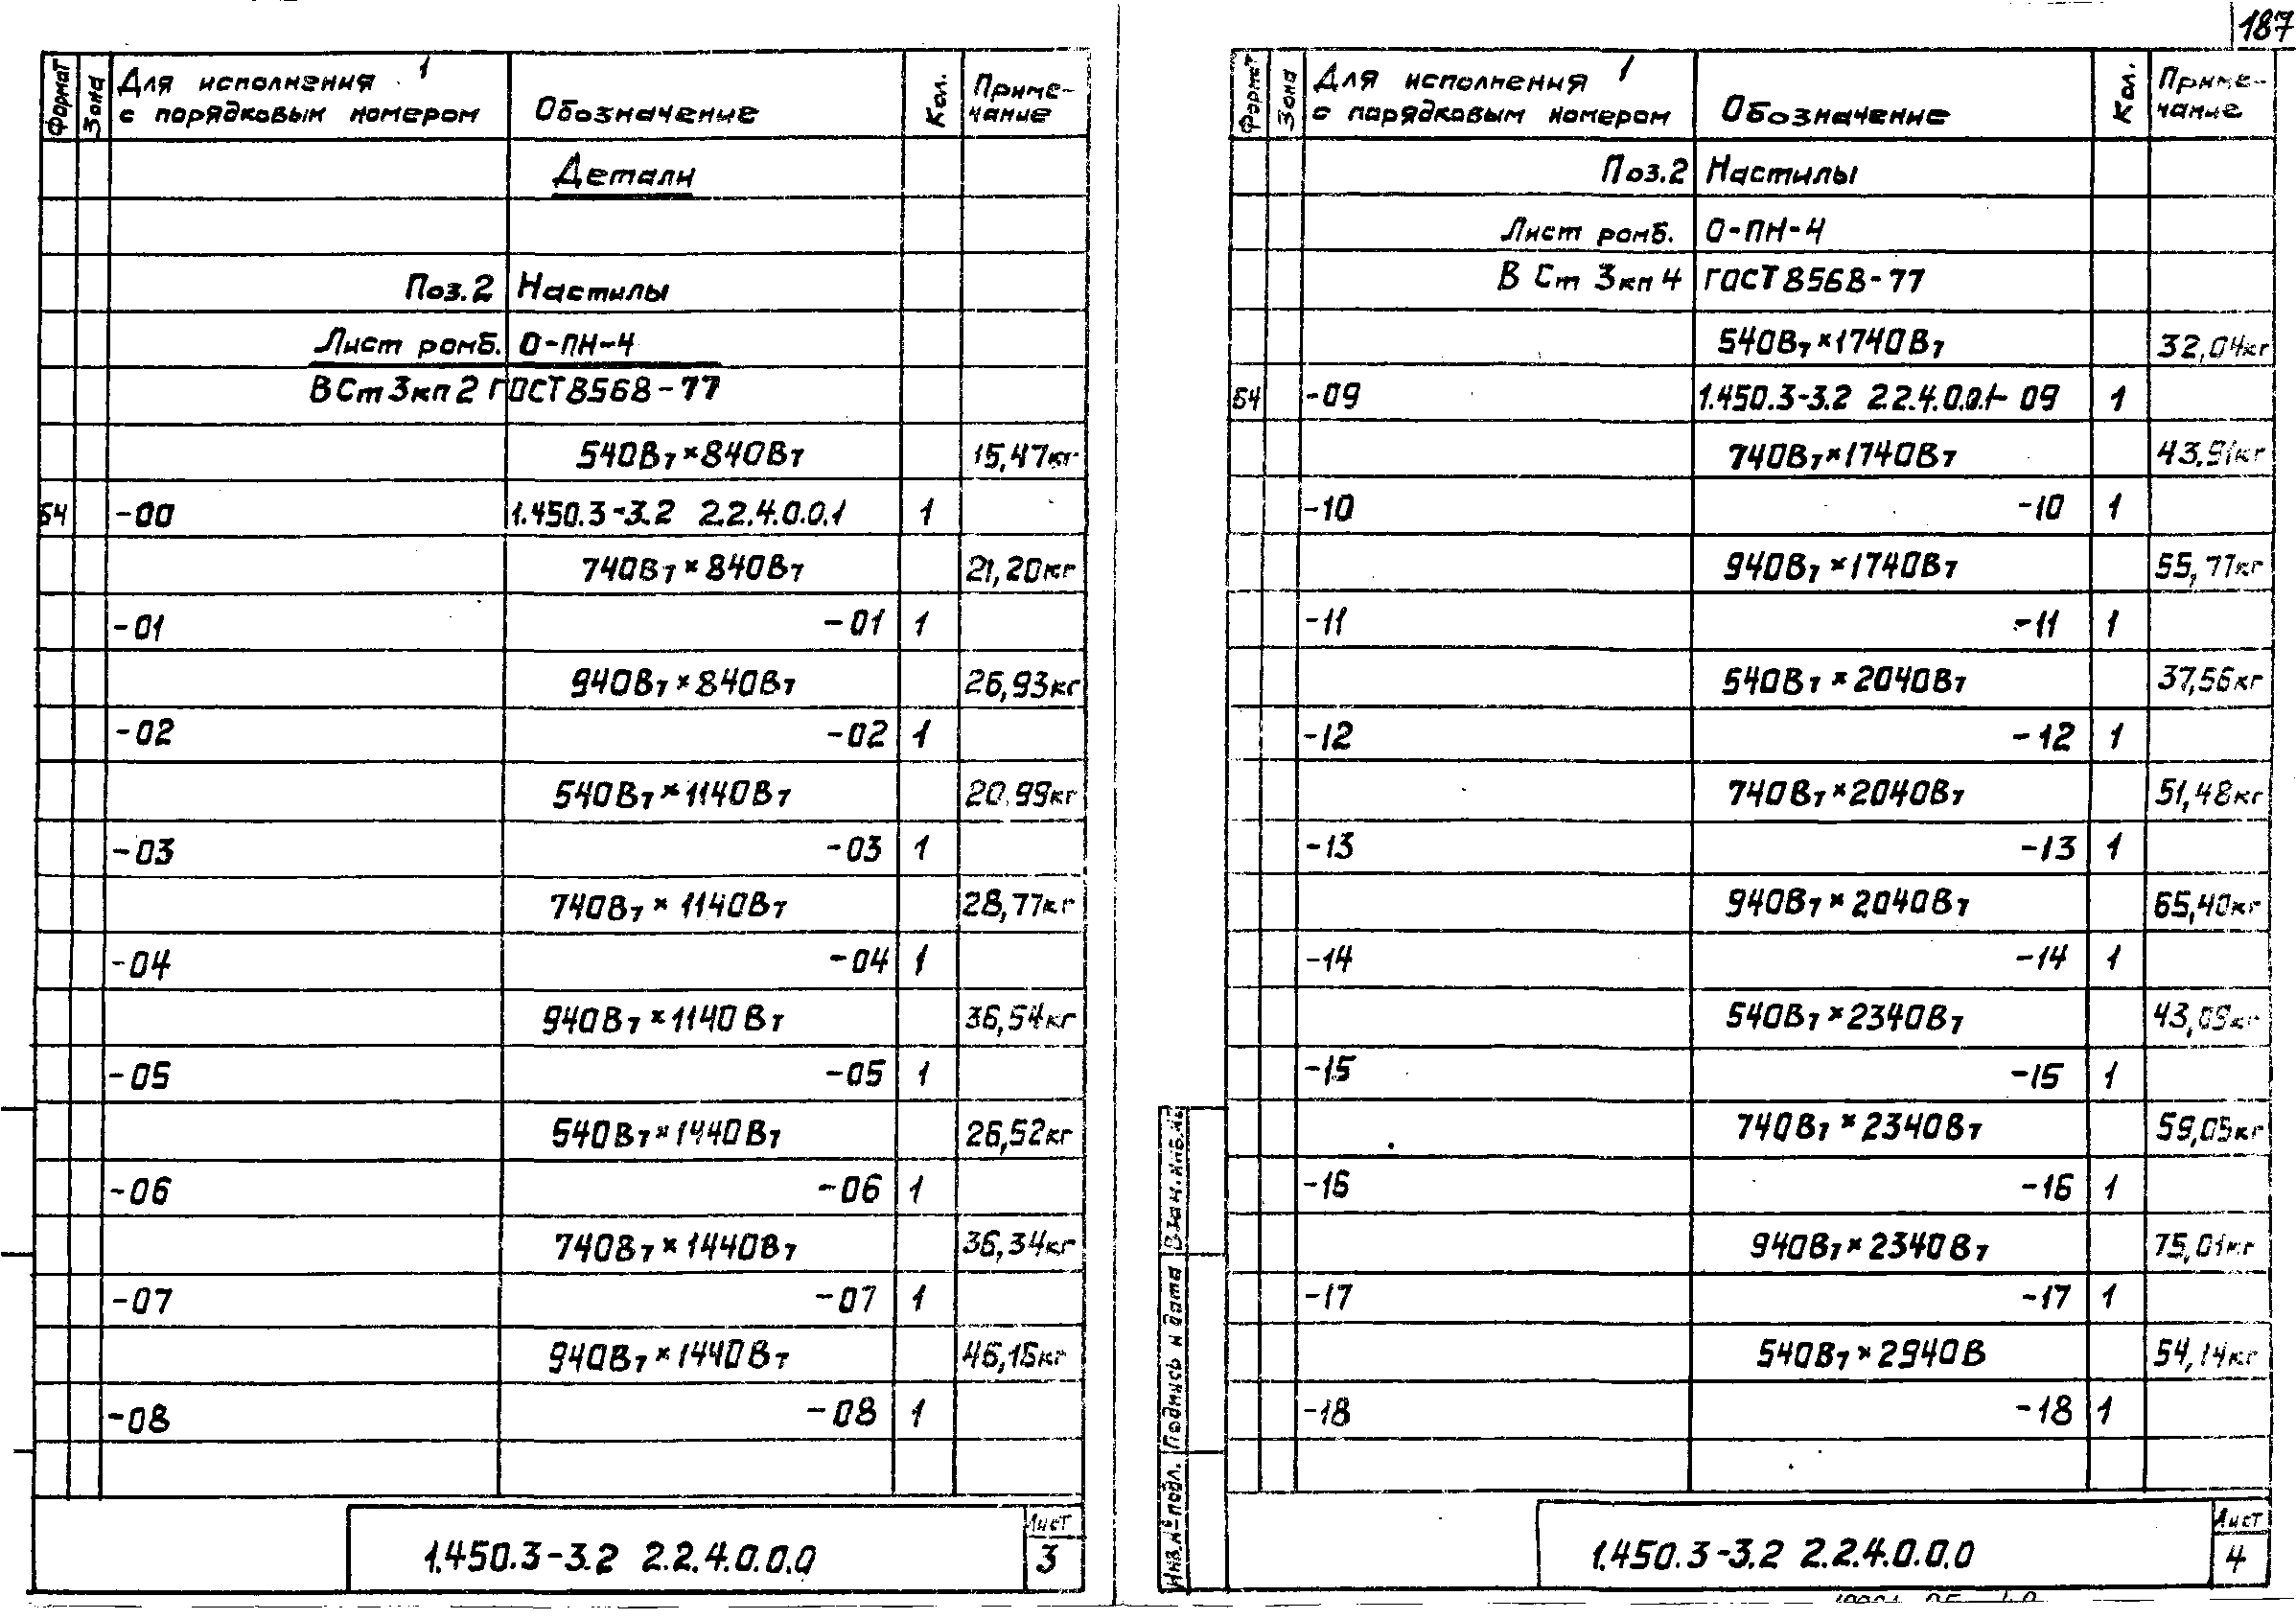 187
Формат Зона Для исполнения 1 с порядковым номером Обозначение Кол. Примечание
Детали
Поз.2 Настилы
Лист ромб. О-ПН-4
ВСт3кп2 ГОСТ 8568-77
540Вт×840Вт 15,47кг
Б4 -00 1.450.3-3.2 2.2.4.0.0.1 1
740Вт×840Вт 21,20кг
-01 -01 1
940Вт×840Вт 26,93кг
-02 -02 1
540Вт×1140Вт 20,99кг
-03 -03 1
740Вт×1140Вт 28,77кг
-04 -04 1
940Вт×1140Вт 36,54кг
-05 -05 1
540Вт×1440Вт 26,52кг
-06 -06 1
740Вт×1440Вт 36,34кг
-07 -07 1
940Вт×1440Вт 46,16кг
-08 -08 1
1.450.3-3.2 2.2.4.0.0.0
Лист
3
Формат Зона Для исполнения 1 с порядковым номером Обозначение Кол. Примечание
Поз.2 Настилы
Лист ромб. О-ПН-4
В Ст 3кп4 ГОСТ 8568-77
540Вт×1740Вт 32,04кг
Б4 -09 1.450.3-3.2 2.2.4.0.0.1-09 1
740Вт×1740Вт 43,91кг
-10 -10 1
940Вт×1740Вт 55,77кг
-11 -11 1
540Вт×2040Вт 37,56кг
-12 -12 1
740Вт×2040Вт 51,48кг
-13 -13 1
940Вт×2040Вт 65,40кг
-14 -14 1
540Вт×2340Вт 43,09кг
-15 -15 1
740Вт×2340Вт 59,05кг
-16 -16 1
940Вт×2340Вт 75,01кг
-17 -17 1
540Вт×2940В 54,14кг
-18 -18 1
Инв.№ подл. Подпись и дата Взам.инв.№
1.450.3-3.2 2.2.4.0.0.0
Лист
4